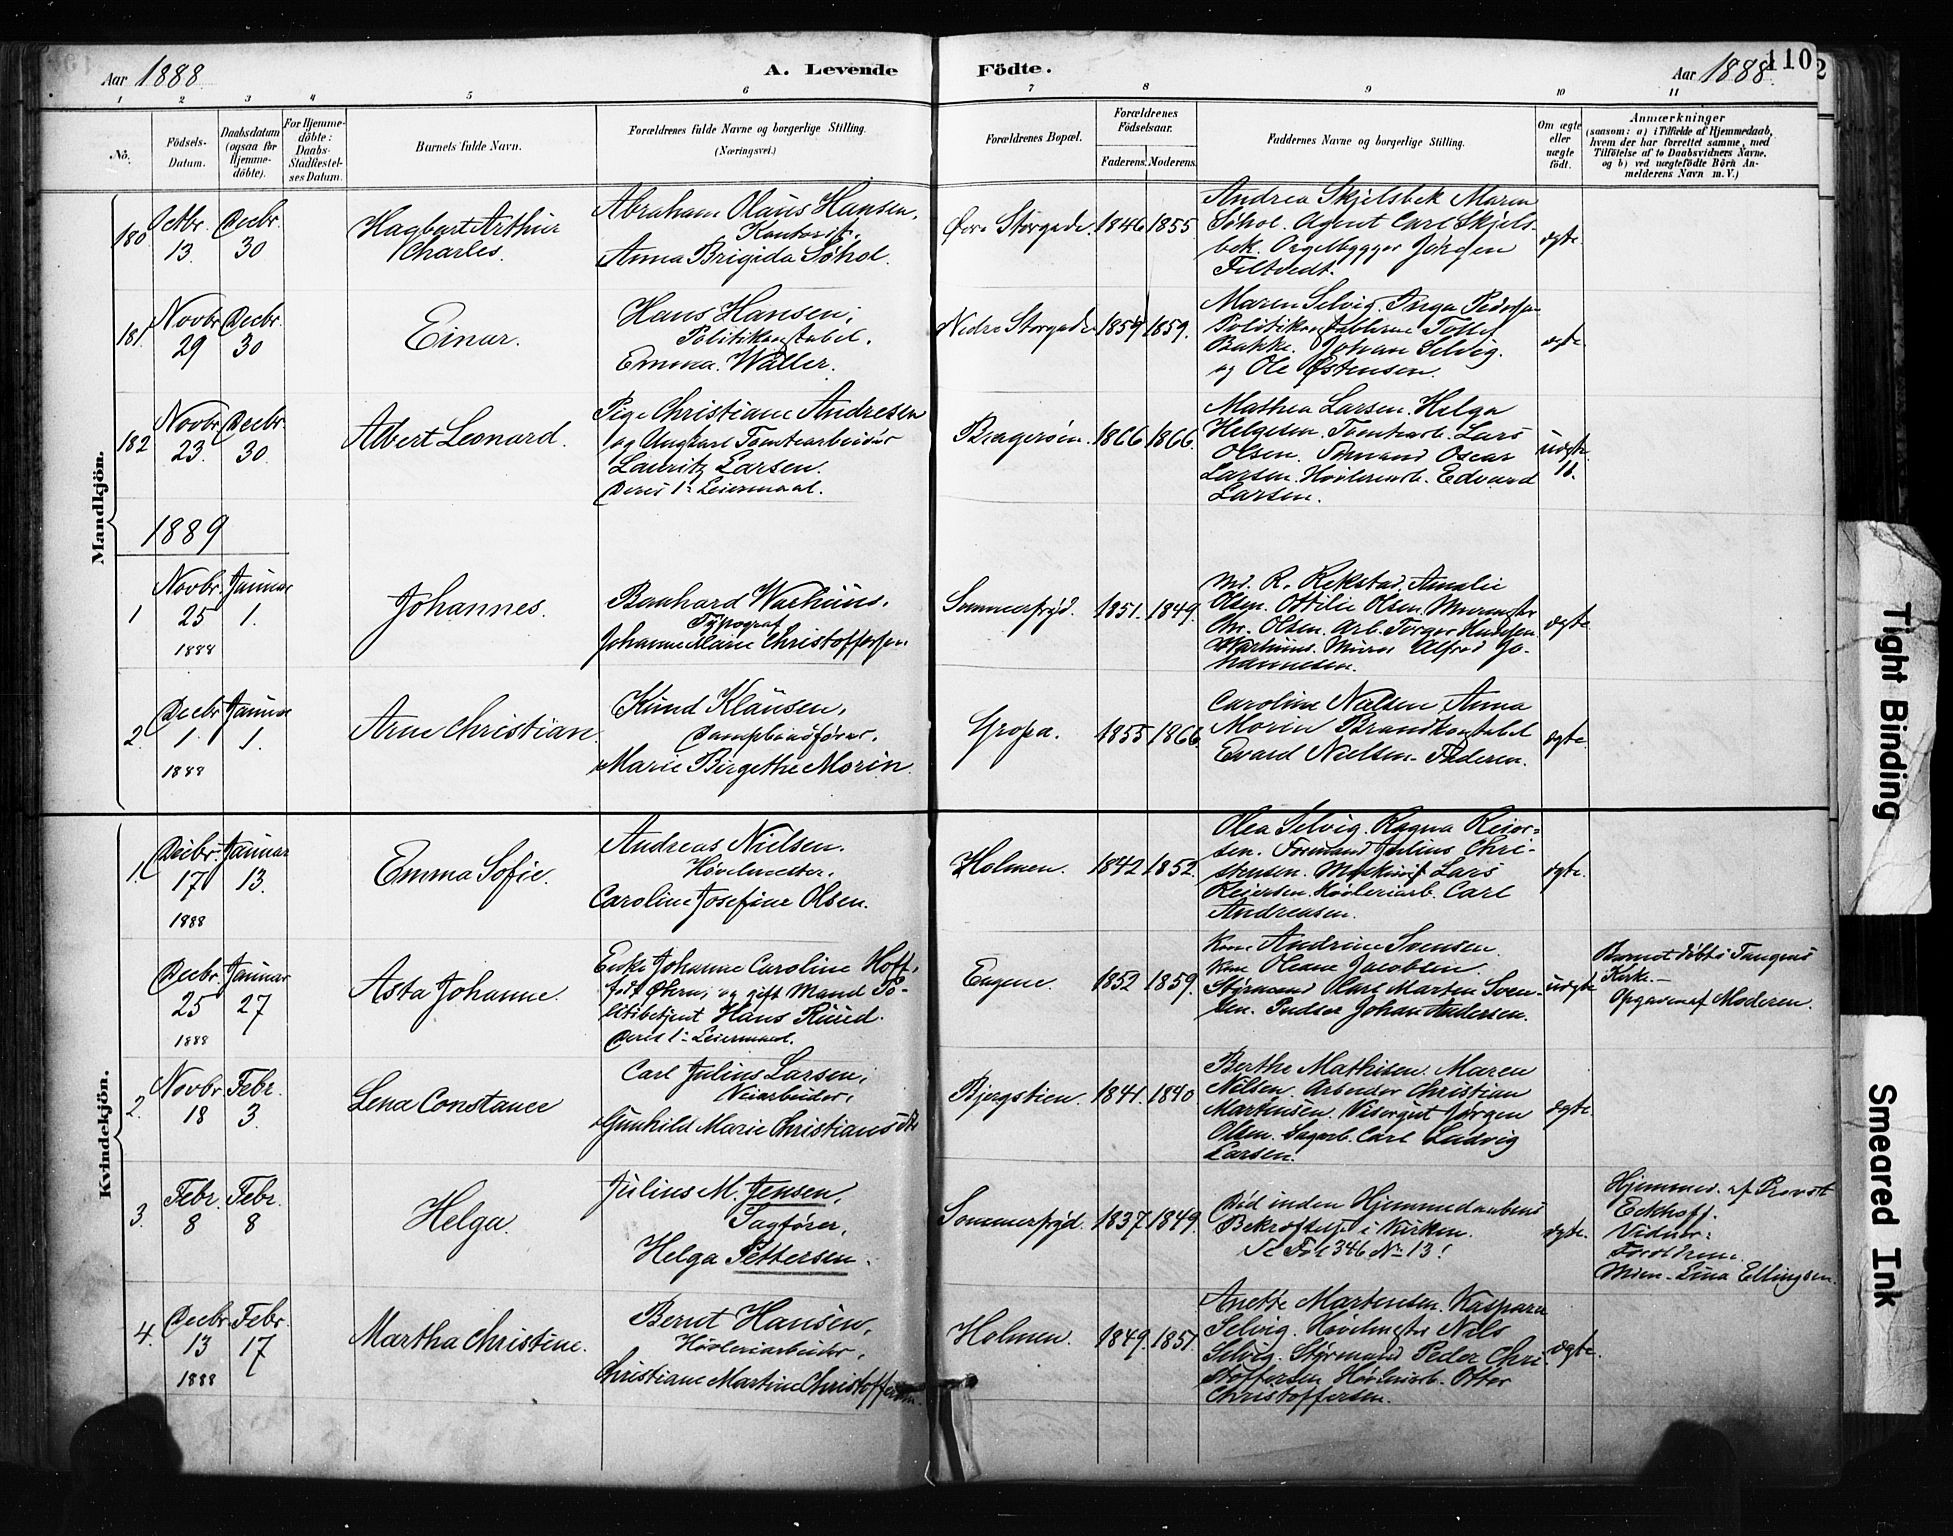 Aar 1888
A. Levende Födte.
Aar 1888.
110
2
1 2 3 4 5 6 7 8 9 10 11
No.
Födsels-
Datum.
Daabsdatum
(ogsaa for
Hjemme-
döbte).
For Hjemme-
döbte:
Daabs-
Stadfæstel-
ses Datum.
Barnets fulde Navn.
Forældrenes fulde Navne og borgerlige Stilling.
(Næringsvei.)
Forældrenes Bopæl.
Forældrenes
Födselsaar.
Faderens.
Moderens.
Faddernes Navne og borgerlige Stilling.
Om ægte
eller
uægte
födt.
Anmærkninger
(saasom: a) i Tilfælde af Hjemmedaab,
hvem der har forrettet samme, med
Tilföielse af to Daabsvidners Navne,
og b) ved uægtefödte Börn An-
melderens Navn m. V.)
Mandkjön.
180
Octbr.
13.
Decbr.
30
Hagbart Arthur
Charles.
Abraham Olaus Hansen,
Kontorist.
Anna Brigida Søhol.
Øvre Storgade.
1846
1855
Andrea Skjelsbek Maren
Søhol. Agent Carl Skjels-
bek. Orgelbygger Jörgen
Filtvedt.
ægte.
181.
Novbr.
29
Decbr.
30
Einar.
Hans Hansen,
Politikonstabel.
Emma Waller.
Nedre Storgade
1854
1859.
Maren Selvig. Inga Pedersen
Politikonstablerne Toffel
Bakke. Johan Selvig.
og Ole Østensen.
ægte.
182
Novbr.
23.
Decbr.
30.
Albert Leonard.
Pige Christiane Andresen
og Ungkarl Tomtearbeider
Lauritz Larsen.
Deres 1ste Leiermaal.
Bragerøen.
1866
1866.
Mathea Larsen. Helga
Helgesen. Tomtearb. Lars
Olsen. Formand Oscar
Larsen. Høvleriarb. Edvard
Larsen.
uægte
1889
1
Novbr.
25
1888
Januar
1.
Johannes.
Bernhard Warhuus.
Typograf
Johanne Marie Christoffersen.
Sommerfryd.
1851.
1849.
Md. R. Rekstad, Amalie
Olsen. Ottilie Olsen. Murmester
Chr. Olsen. Arb. Torger Knudsen
Warhuus. Murer Alfred Jo-
hannesen.
ægte.
2.
Decbr.
1.
1888
Januar
1.
Arne Christian.
Knud Klausen,
Dampbaadfører.
Marie Birgethe Morin
Gropa.
1855
1866
Caroline Nielsen, Anna
Morin Brandkonstabel
Evard Nielsen. Faderen.
ægte.
Kvindekjön.
1.
Decbr.
17
1888
Januar
13.
Emma Sofie.
Andreas Nielsen.
Høvelmester.
Caroline Josefine Olsen.
Holmen.
1842
1852.
Olea Selvig. Ragna Reier-
sen. Formand Julius Chri-
stensen. Maskinist Lars
Reiersen. Høvleriarb. Carl
Andreasen.
ægte.
Decbr.
25
1888
Januar
27
Asta Johanne.
Enke Johanne Caroline Hoff,
født Øhrn, og gift Mand Po-
litibetjent Hans Ruud.
Deres 1ste Leiermaal.
Engene.
1852
1859.
Kone Andrine Svensen.
Kone Oleane Jacobsen.
Styrmand Olaf Martin Sven-
sen. Pudser Johan Andersen.
uægte
Barnet døbt i Tangens
Kirke.—
Opgaven af Moderen.
2.
Novbr.
18
Febr.
3.
Lena Constance
Carl Julius Larsen,
Veiarbeider,
Gunhild Marie Christiansdtr
Bjergstien.
1841.
1840
Berthe Mathisen. Maren
Nilsen. Arbeider Christian
Martinsen. Visergut Jørgen
Olsen. Sagarb. Carl Ludvig
Larsen.
ægte.
3.
Febr.
8
Febr.
8
Helga.
Julius M. Jensen,
Sagfører,
Helga Pettersen.
Sommerfryd.
1837.
1849.
Død inden Hjemmedaabens
Bekræftelse i Kirken.
Se Fol 346 No 13!
ægte.
Hjemmed. af Provst
Eckhoff.
Vidner:
Forældrene
Lina Ellingsen.
4.
Decbr.
13
1888
Febr.
17
Martha Christine.
Bernt Hansen,
Høvleriarbeider,
Christiane Martine Christoffersen.
Holmen.
1849.
1851.
Anette Martinsen. Kaspara
Selvig. Høvelmester Nils
Selvig. Styrmand Peder Chri-
stoffersen Høvleriarb. Otter
Christoffersen.
ægte.
Tight Binding
Smeared Ink